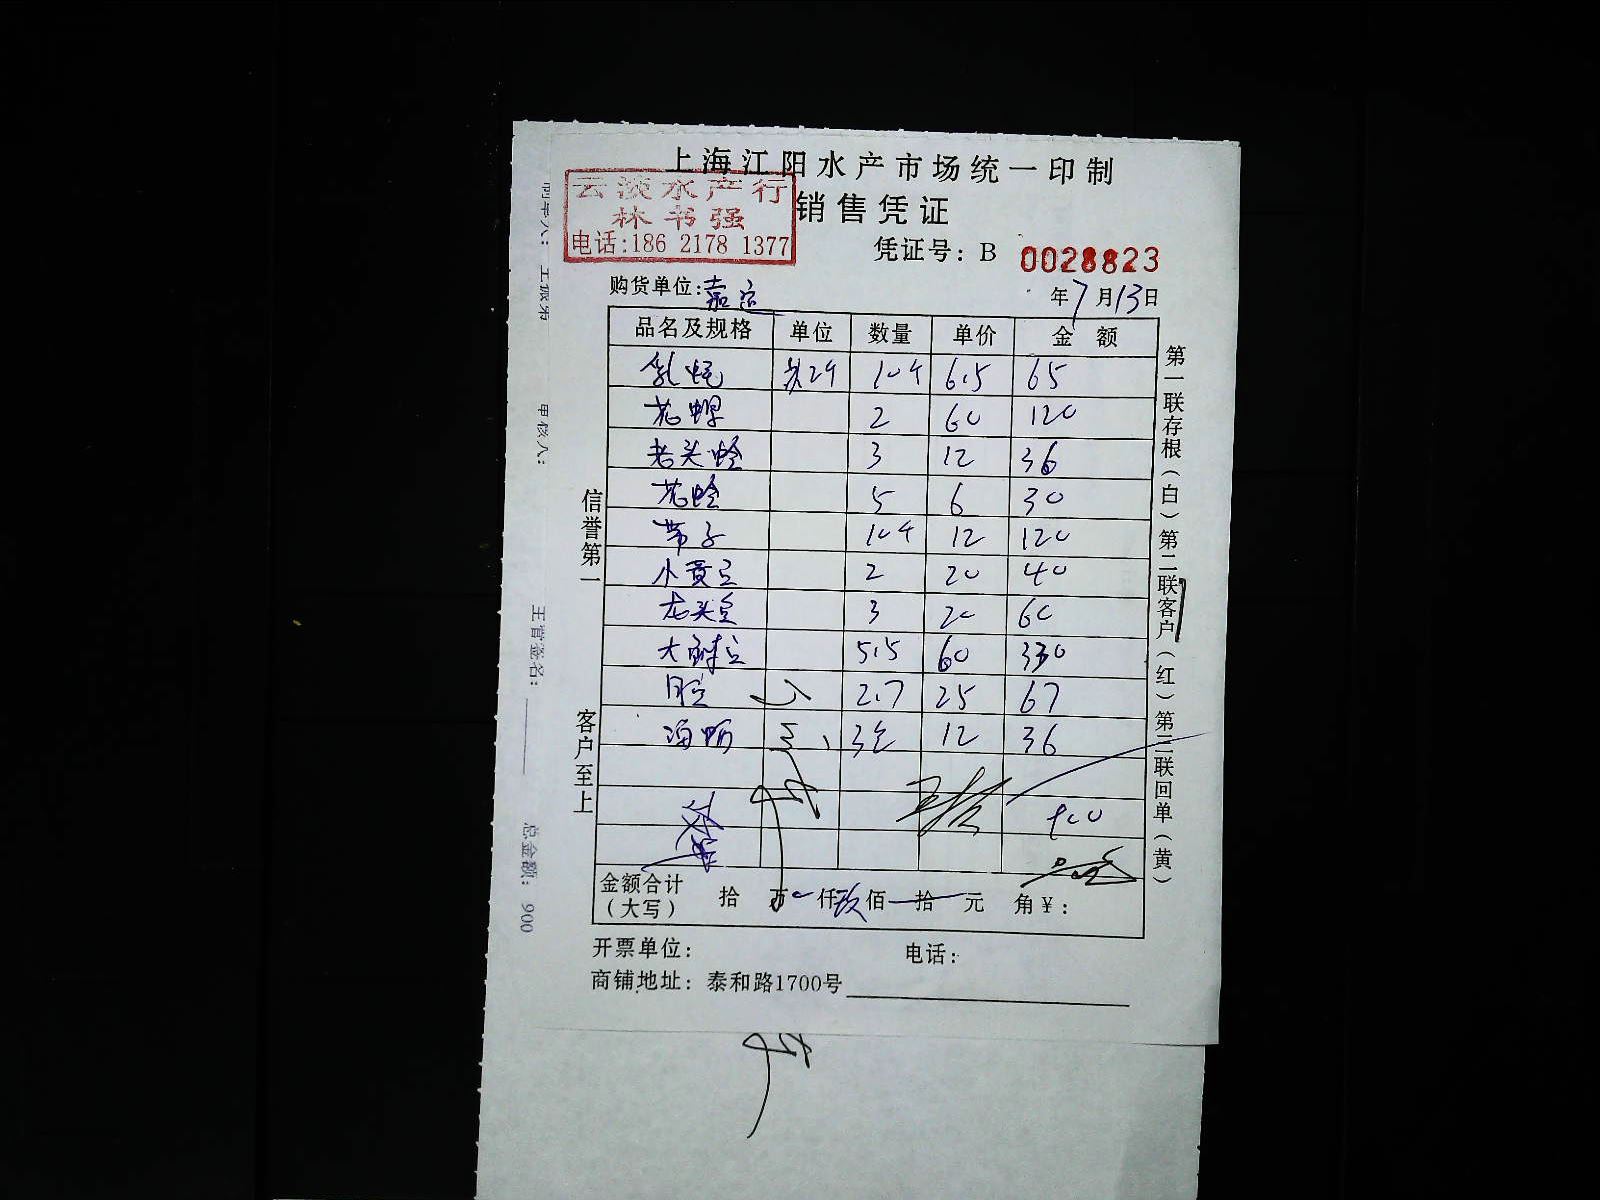 上海江阳水产市场统一印制
云淡水产行
林书强
电话:186 2178 1377
销售凭证
凭证号: B 0028823
购货单位:嘉
年7月13日
品名及规格 单位 数量 单价 金额
10斤 6.5 65
花螺 2 60 120
老头蛤 3 12 36
花蛤 5 6 30
带子 10斤 12 120
小黄 2 20 40
龙头 3 20 60
大 5.5 60 330
2.7 25 67
海蛎 3包 12 36
900
金额合计(大写) 拾 万 仟玖佰 拾 元 角¥:
开票单位: 电话:
商铺地址: 泰和路1700号
信誉第一 客户至上
第一联存根(白)第二联客户(红)第三联回单(黄)
总金额: 900